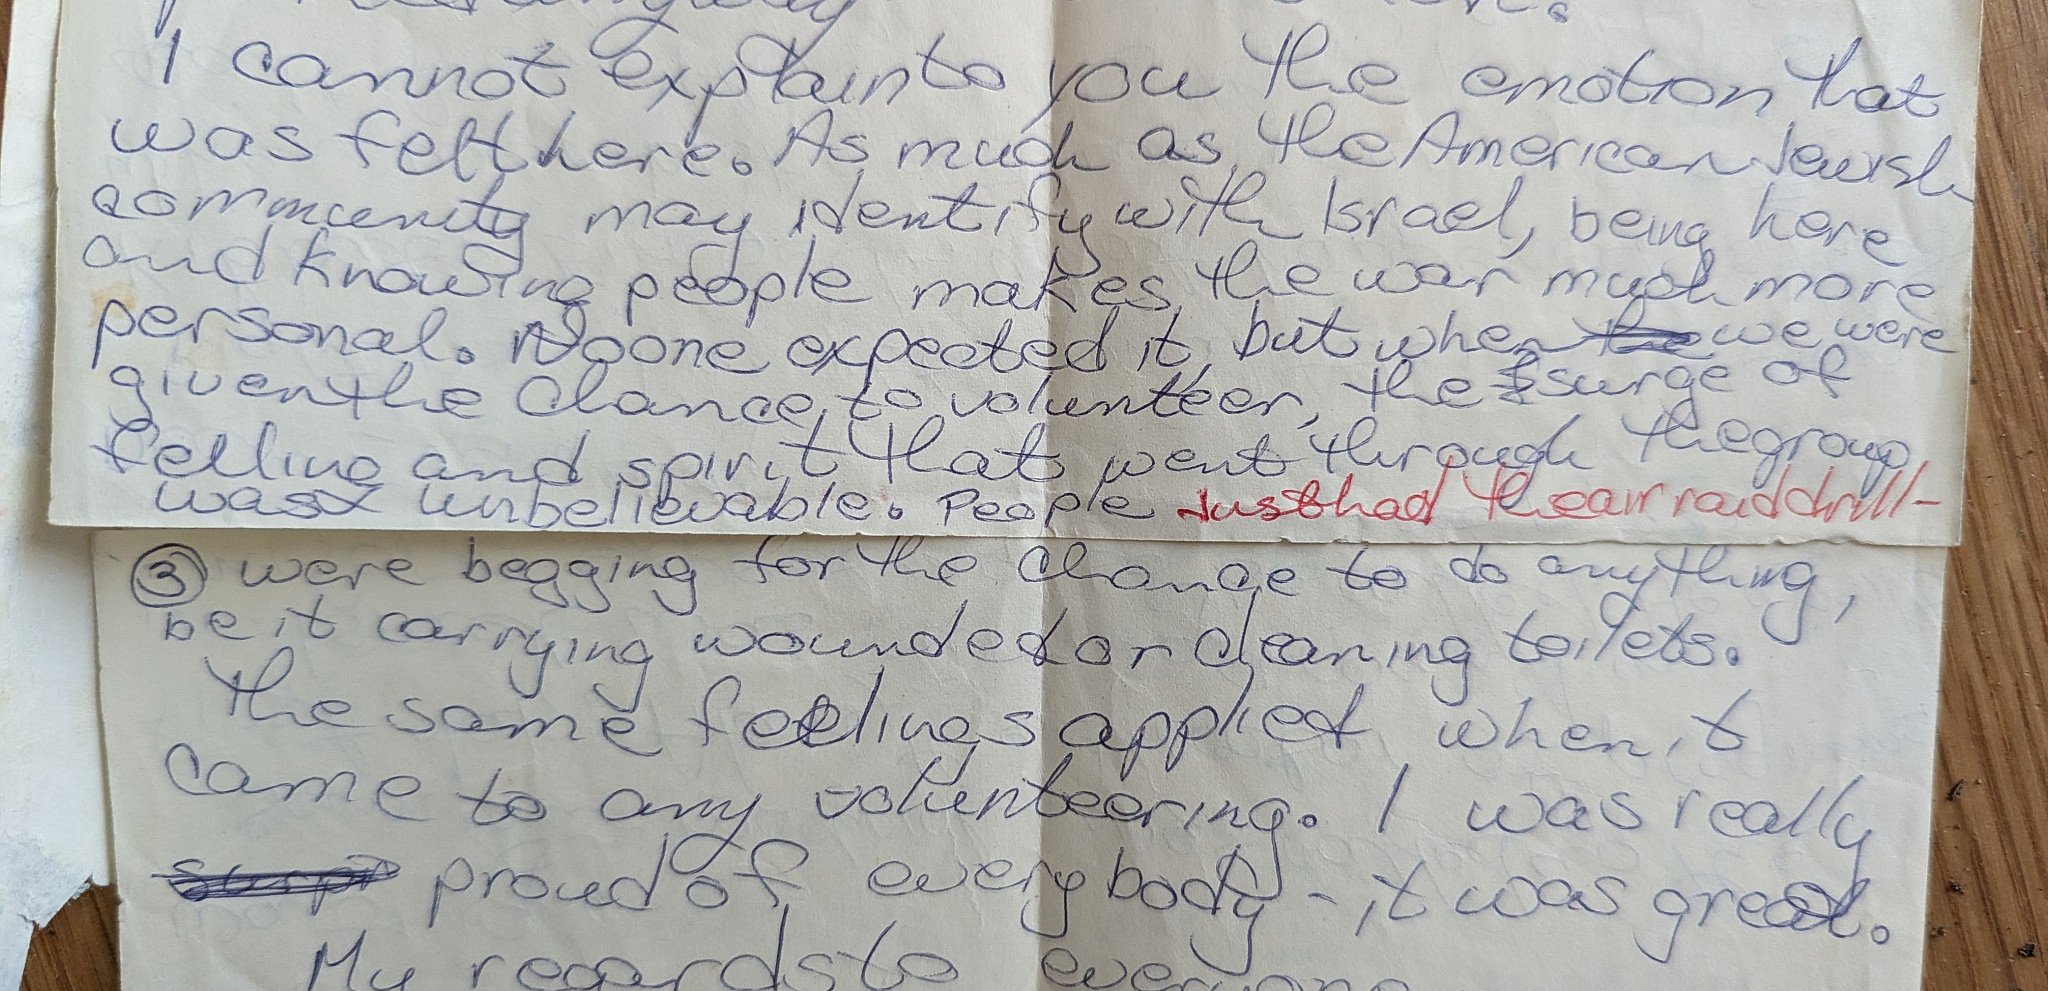 I cannot explain to you the emotion that
was felt here. As much as the American Jewish
community may identify with Israel, being here
and knowing people makes the war much more
personal. No one expected it, but when we were
given the chance to volunteer, the surge of
felling and spirit that went through the group
was unbelievable. People Just had the air raid drill-
③ were begging for the chance to do anything,
be it carrying wounded or cleaning toilets.
The same feelings applied when it
came to any volunteering. I was really
proud of everybody - it was great.
My regards to everyone